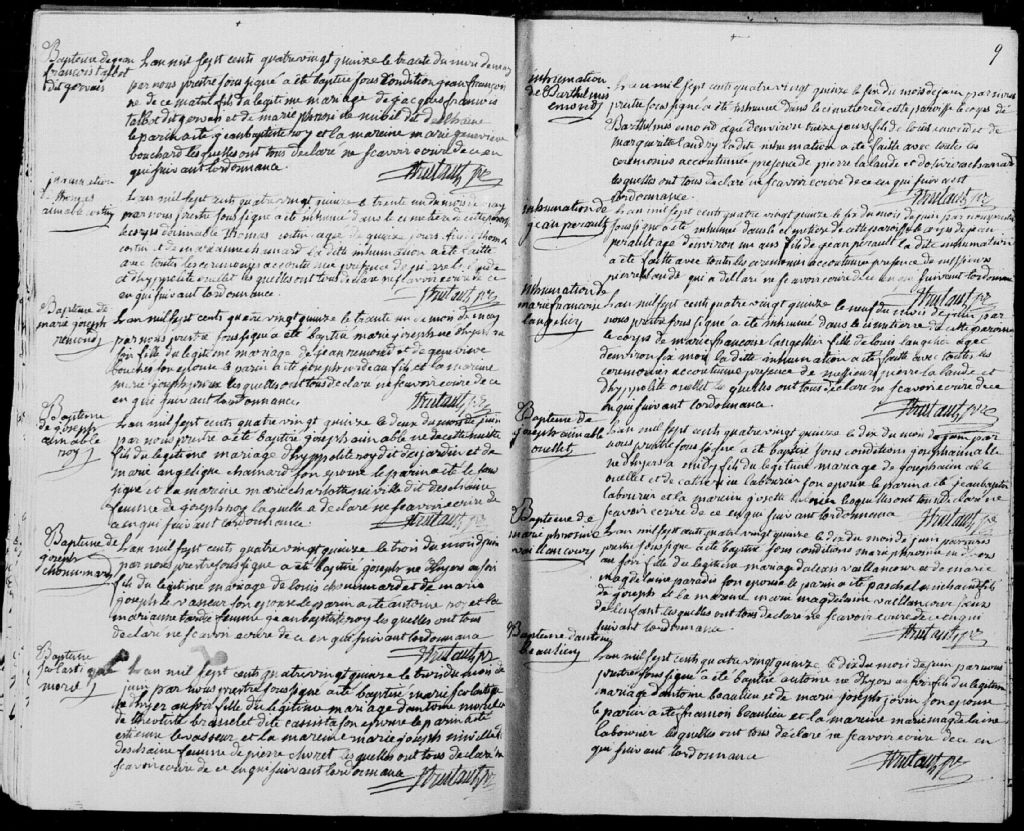 Bapteme de jean
francois talbot
dit gervais
Lan mil sept cents quatre vingt quinze le trante du mois de may
par nous prestre soussigné a été baptisé sous condition jean francois
né de ce matin fils du legitime mariage de jacques francois
talbot dit gervais et de marie
le parin a été jean baptiste roy et la mareine marie genevieve
bouchard les quelles ont tous declaré ne scavoir ecrire de ce en
qui suivant lordonnance.
Trutaut ptre
inhumation
de thomas
aimable cottin
Lan mil sept cents quatre vingt quinze le trente un de mois de may
par nous prestre soussigné a été inhumé dans le cimetiere de cette paroisse
le corps daimable thomas cottin agé de quinze jours fils de thomas
cottin et de marianne chamard la ditte inhumation a été faitte
avec touttes les ceremonies accoutumé presence de pierre lalande
et dhypolite ouellet les quelles ont tous declaré ne scavoir ecrire de ce
en qui suivant lordonnance.
Trutaut ptre
Bapteme de
marie joseph
remond
Lan mil sept cents quatre vingt quinze le trante un de mois de may
par nous prestre soussigné a été baptisé marie joseph né dhyer au
soir fille du legitime mariage de jean remond et de genevieve
boucher son epouse le parin a été joseph fils et la mareine
marie joseph les quelles ont tous declaré ne scavoir ecrire de ce
en qui suivant lordonnance.
Trutaut ptre
Bapteme
de joseph
aimable
roy
Lan mil sept cents quatre vingt quinze le deux du mois de juin
par nous prestre a été baptisé joseph aimable né de cette nuit
fils du legitime mariage dhyppolite roy dit desjardin et de
marie angelique chamard son epouse le parin a été le sous
signé et la mareine marie charlotte miville dit deschaine
femme de joseph roy la quelle a declaré ne scavoir ecrire de
ce en qui suivant lordonnance.
Trutaut ptre
Bapteme de
joseph
chouinard
Lan mil sept cents quatre vingt quinze le trois du mois de juin
par nous prestre soussigné a été baptisé joseph né dhyer au soir
fils du legitime mariage de louis chouinard et de marie
joseph le vasseur son epouse le parin a été antoine roy et la
marianne tardif femme jean baptiste roy les quelles ont tous
declaré ne scavoir ecrire de ce en qui suivant lordonnance
Trutaut ptre
Bapteme
scolastique
morel
Lan mil sept cents quatre vingt quinze le trois du mois de
juin par nous prestre soussigné a été baptisé marie scolastique
né dhyer au soir fille du legitime mariage dantoine morel
de theotiste brasselet dite cassista son epouse le parin a été
estienne levasseur et la mareine marie joseph miville dit
deschaine femme de pierre choret les quelles ont tous declaré ne
scavoir ecrire de ce en qui suivant lordonnance
Trutaut ptre
9
inhumation
de Barthelmis
emond
Lan mil sept cents quatre vingt quinze le six du mois de juin par nous
prestre soussigné a été inhumé dans le cimetiere de cette paroisse le corps de
Barthelmis emond agé denviron treize jours fils de louis emond et de
marguerite landry la ditte inhumation a été faitte avec touttes les
ceremonies accoutumé presence de pierre lalande et
les quelles ont tous declaré ne scavoir ecrire de ce en qui suivant
lordonnance.
Trutaut ptre
inhumation de
jean perault
Lan mil sept cents quatre vingt quinze le six du mois de juin par nous prestre
soussigné a été inhumé dans le cimetiere de cette paroisse le corps de jean
perault agé denviron un ans fils de jean perault la ditte inhumation
a été faitte avec touttes les ceremonies accoutumé presence de messieur
pierre lalande qui a declaré ne scavoir ecrire de ce en qui suivant lordonnance
Trutaut ptre
inhumation de
marie francoise
langelier
Lan mil sept cents quatre vingt quinze le neuf du mois de juin par
nous prestre soussigné a été inhumé dans le cimetiere de cette paroisse
le corps de marie francoise langellier fille de louis langelier agée
denviron la ditte inhumation a été faitte avec touttes les
ceremonies accoutumé presence de messieur pierre lalande et
dhyppolite ouellet les quelles ont tous declaré ne scavoir ecrire de ce
en qui suivant lordonnance
Trutaut ptre
Bapteme de
joseph aimable
ouellet
Lan mil sept cents quatre vingt quinze le dix du mois de juin par
nous prestre soussigné a été baptisé sous conditions joseph aimable
né dhyers a midy fils du legitime mariage de joseph aimable
ouellet et de catherine labourier son epouse le parin a été jean baptiste
labourier et la mareine josette les quelles ont tous declaré ne
scavoir ecrire de ce en qui suivant lordonnance
Trutaut ptre
Bapteme de
marie phrosine
vaillancoury
Lan mil sept cents quatre vingt quinze le dix du mois de juin par nous
prestre soussigné a été baptisé sous conditions marie phrosine né dhyers
au soir fille du legitime mariage de vaillancour et de marie
magdelaine paradis son epouse le parin a été paschal michaud fils
de joseph et la mareine marie magdelaine vaillancour soeur
de lenfant les quelles ont tous declaré ne scavoir ecrire de ce en qui
suivant lordonnance
Trutaut ptre
Bapteme dantoine
beaulieu
Lan mil sept cents quatre vingt quinze le dix du mois de juin par nous
prestre soussigné a été baptisé antoine né dhyers au soir fils du legitime
mariage dantoine beaulieu et de marie joseph son epouse
le parin a été francois beaulieu et la mareine marie magdelaine
labourier les quelles ont tous declaré ne scavoir ecrire de ce en
qui suivant lordonnance
Trutaut ptre